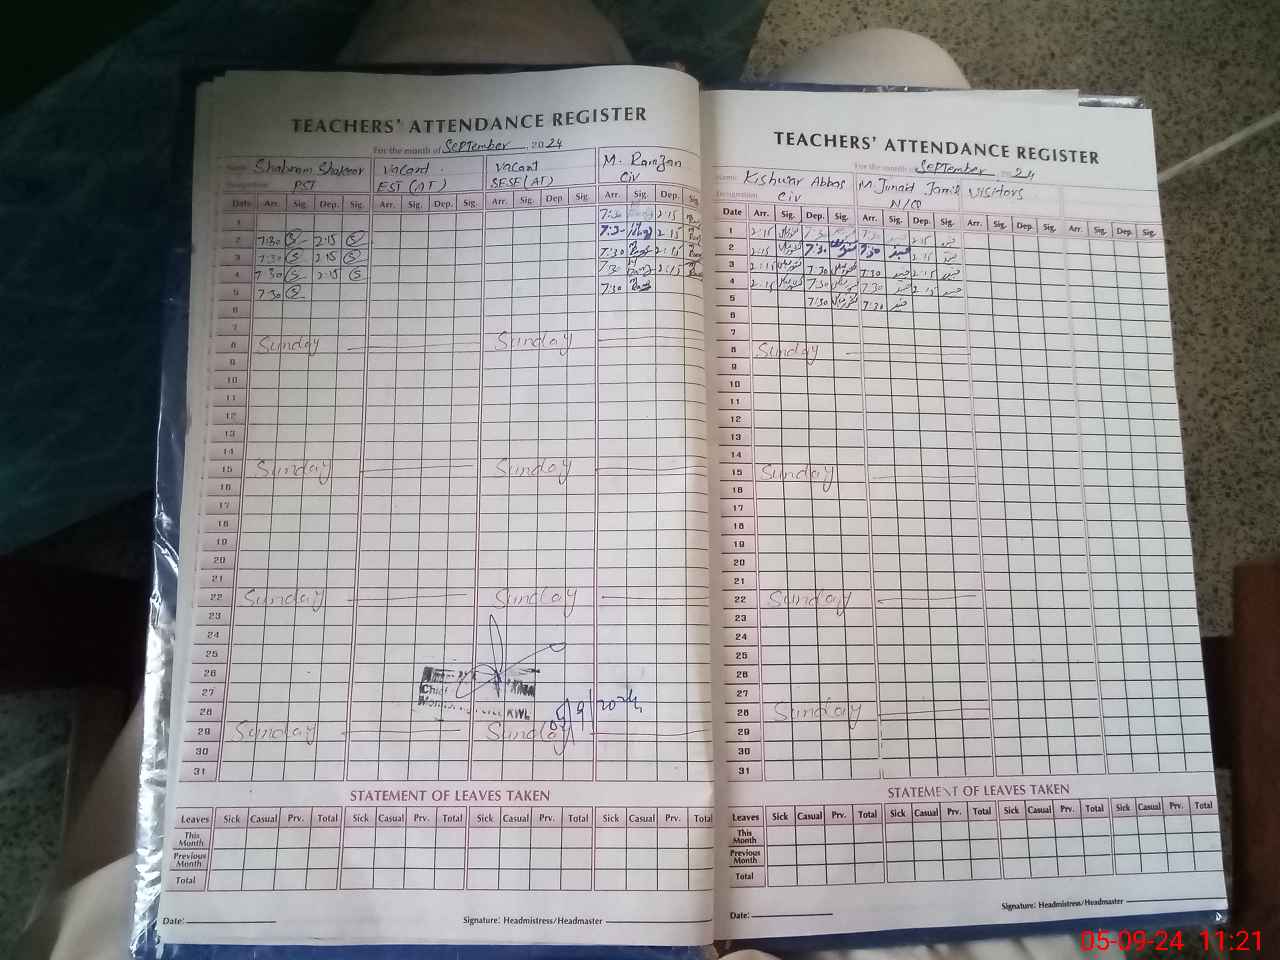 TEACHERS' ATTENDANCE REGISTER
For the month of September 2024
Name Shabnam Shakoor Vacant Vacant M. Ramzan
Designation PST EST (AT) SESE (AT) Civ
Date Arr. Sig. Dep. Sig. Arr. Sig. Dep. Sig. Arr. Sig. Dep. Sig. Arr. Sig. Dep. Sig.
1 7:30 2:15
2 7:30 2:15 7:30 2:15
3 7:30 2:15 7:30 2:15
4 7:30 2:15 7:30 2:15
5 7:30 7:30
6
7
8 Sunday Sunday
9
10
11
12
13
14
15 Sunday Sunday
16
17
18
19
20
21
22 Sunday Sunday
23
24
25
26
27
Chief
KWL
5/9/2024
28
29 Sunday Sunday
30
31
STATEMENT OF LEAVES TAKEN
Leaves Sick Casual Prv. Total Sick Casual Prv. Total Sick Casual Prv. Total Sick Casual Prv. Total
This Month
Previous Month
Total
Date: Signature: Headmistress/Headmaster
TEACHERS' ATTENDANCE REGISTER
For the month of September 2024
Name: Kishwar Abbas M. Junaid Jamil Visitors
Designation Civ N/Q
Date Arr. Sig. Dep. Sig. Arr. Sig. Dep. Sig. Arr. Sig. Dep. Sig. Arr. Sig. Dep. Sig.
1 2:15 7:30 7:30 2:15
2 2:15 7:30 7:30 2:15
3 2:15 7:30 7:30 2:15
4 2:15 7:30 7:30 2:15
5 7:30 7:30
6
7
8 Sunday
9
10
11
12
13
14
15 Sunday
16
17
18
19
20
21
22 Sunday
23
24
25
26
27
28 Sunday
29
30
31
STATEMENT OF LEAVES TAKEN
Leaves Sick Casual Prv. Total Sick Casual Prv. Total Sick Casual Prv. Total Sick Casual Prv. Total
This Month
Previous Month
Total
Date: Signature: Headmistress/Headmaster
05-09-24 11:21